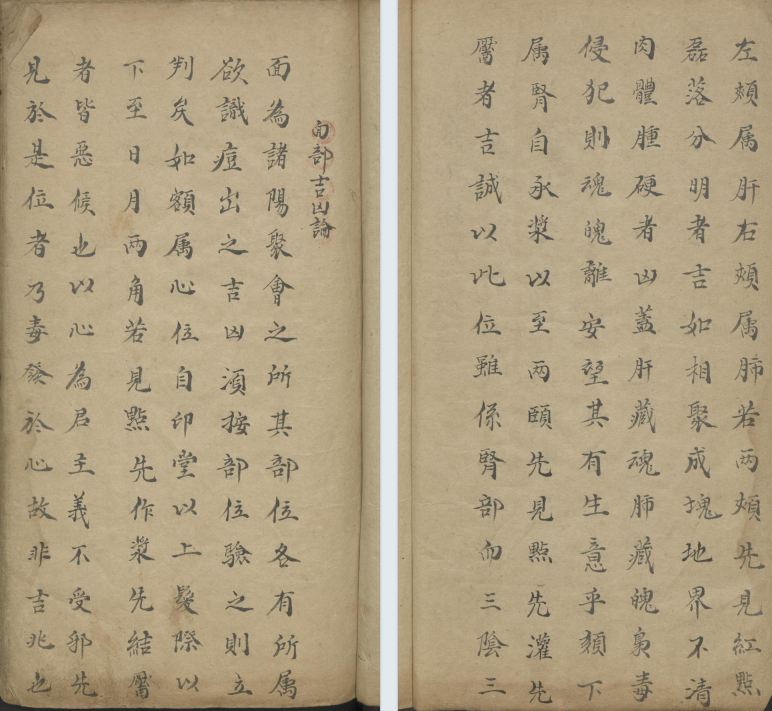 面部吉凶論
面為諸陽聚會之所其部位各有所属
欲識痘出之吉凶湏按部位驗之則立
判矣如額属心位自印堂以上髮際以
下至日月两角若見點先作漿先結靨
者皆惡候也以心為君主義不受邪先
見於是位者乃毒發於心故非吉兆也
左頰属肝右頰属肺若两頰先見紅點
磊落分明者吉如相聚成塊地界不清
肉體腫硬者凶蓋肝藏魂肺藏魄梟毒
侵犯則魂魄離安望其有生意乎頦下
属腎自承漿以至两頤先見點先灌先
靨者吉誠以此位雖係腎部而三陰三